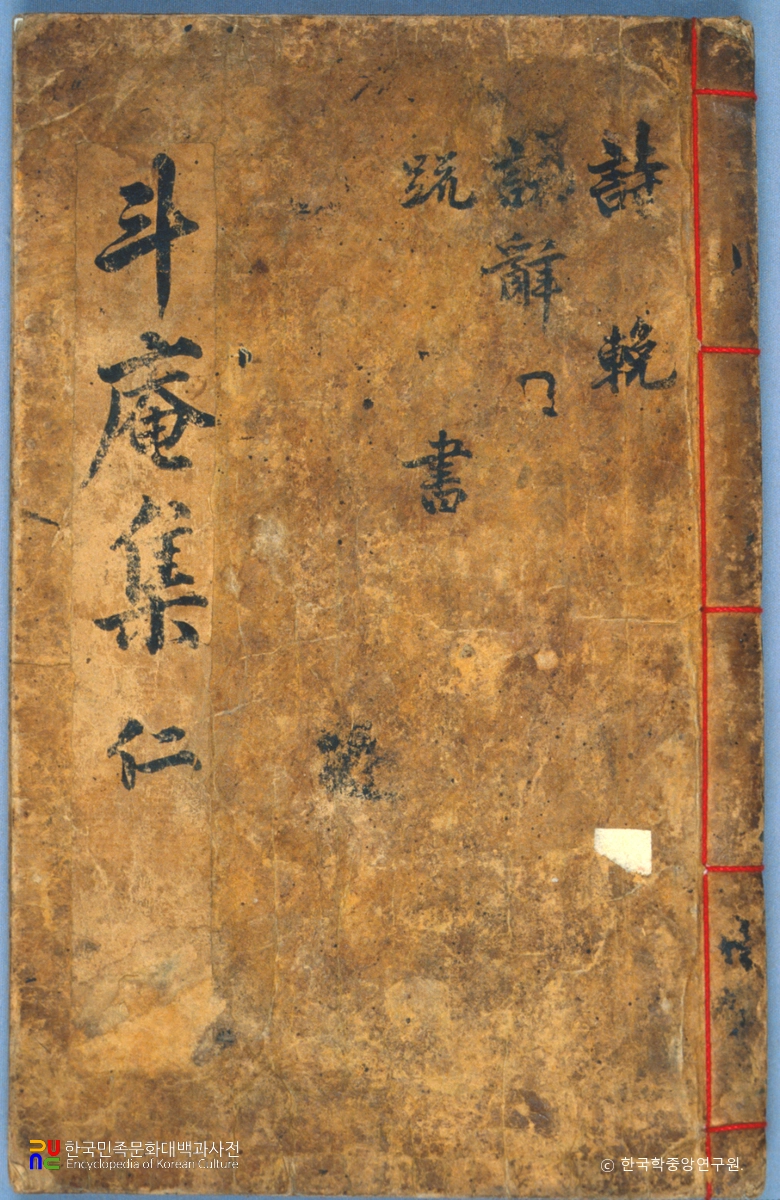 詩 輓
辭
疏 書
斗庵集 仁
한국민족문화대백과사전
Encyclopedia of Korean Culture
© 한국학중앙연구원.